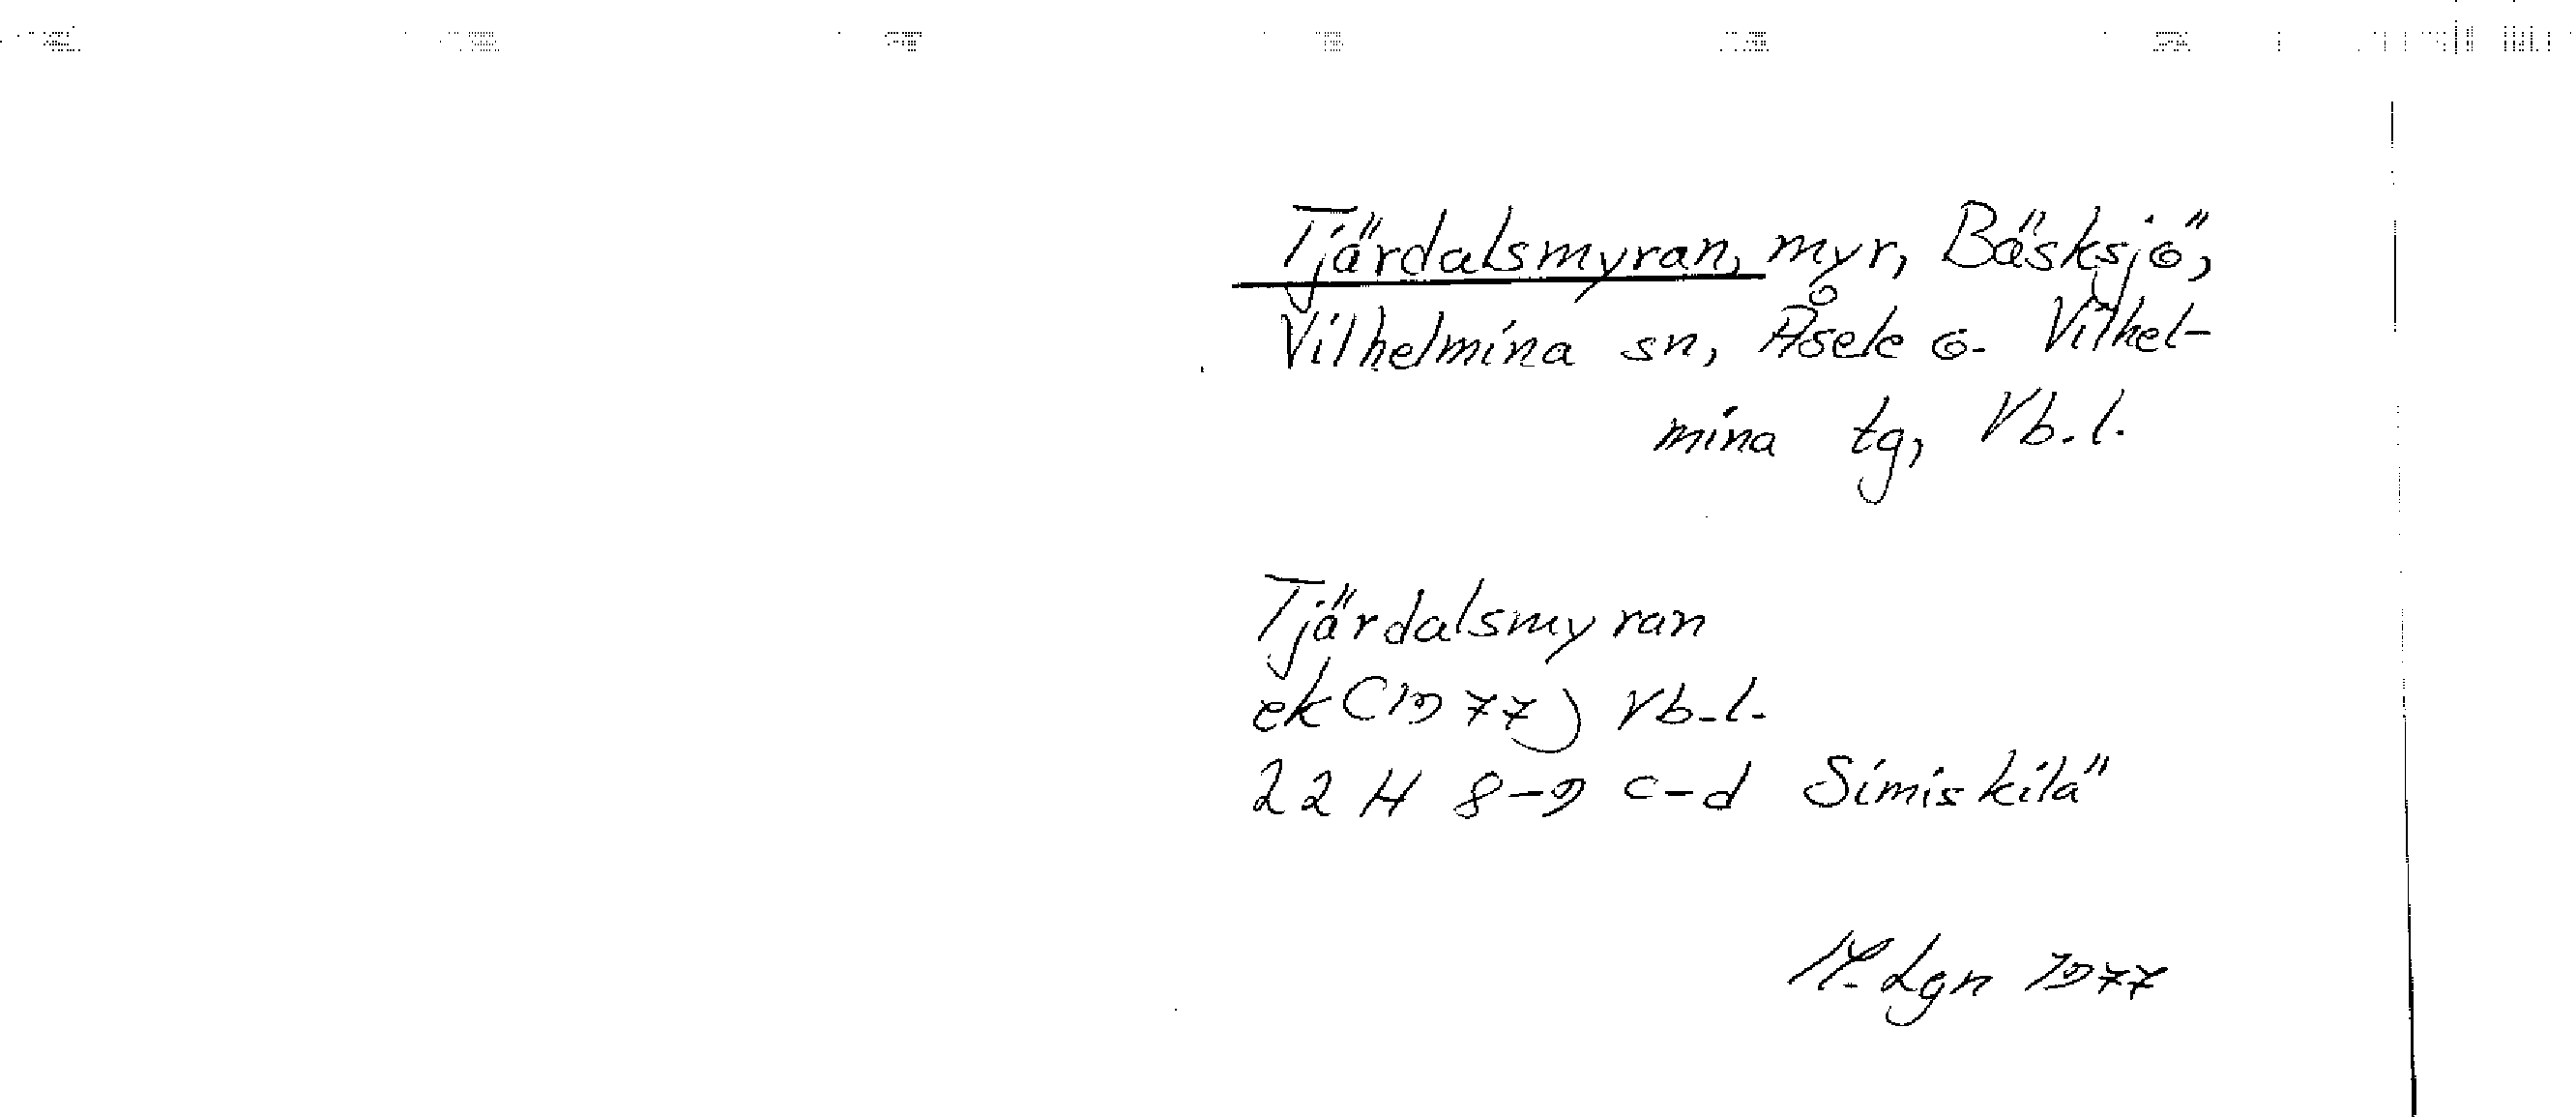 Tjärdalsmyran, myr, Bäsksjö,
Vilhelmina sn, Åsele o. Vilhel-
mina tg, Vb. l.
Tjärdalsmyran
ek (1977) Vb. l.
22 H 8-9 c-d Simiskilä
M. Lgn 1977